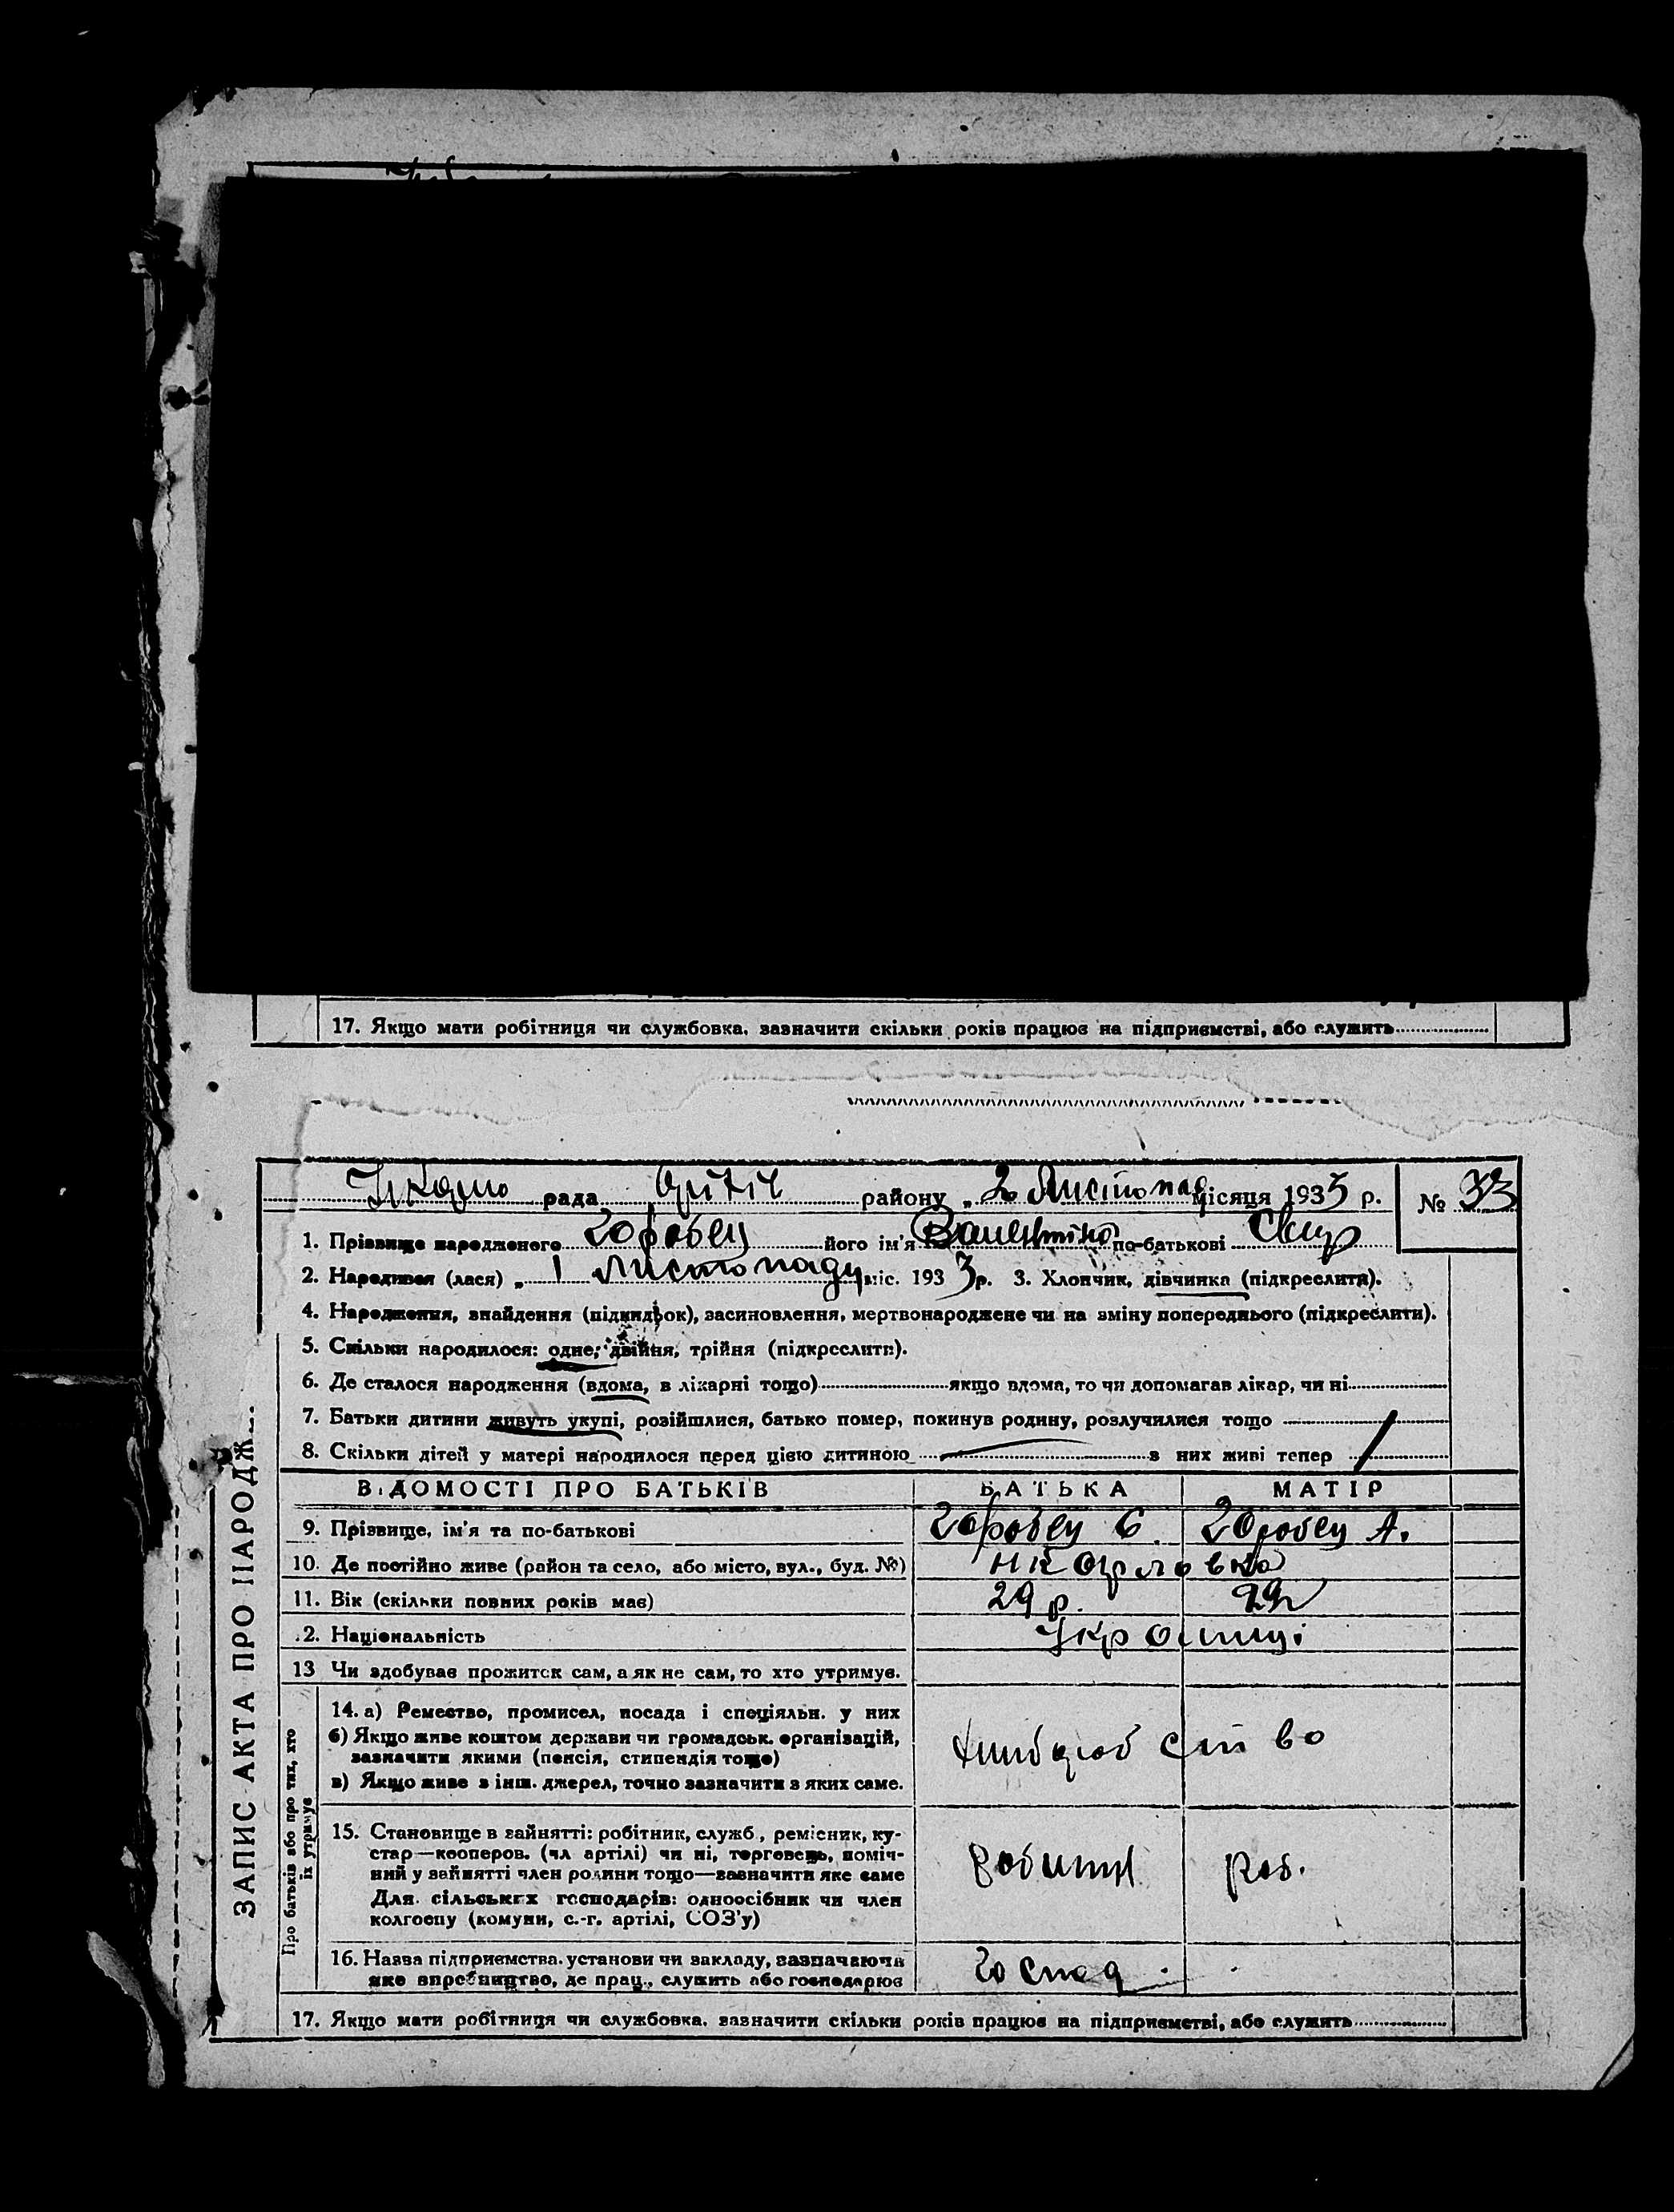 17. Якщо мати робітниця чи службовка, зазначити скільки років працює на підприємстві, або служить
рада району „ 2 Листопад місяця 1933 р. № 33
1. Прізвище народженого Горобец його ім'я по-батькові
2. Народився (лася) „ 1 Листопаду міс. 1933 р. 3. Хлопчик, дівчинка (підкреслити).
4. Народження, знайдення (підкидьок), засиновлення, мертвонароджене чи на зміну попереднього (підкреслити).
5. Скільки народилося: одне, двійня, трійня (підкреслити).
6. Де сталося народження (вдома, в лікарні тощо) якщо вдома, то чи допомагав лікар, чи ні
7. Батьки дитини живуть укупі, розійшлися, батько помер, покинув родину, розлучилися тощо
8. Скільки дітей у матері народилося перед цією дитиною з них живі тепер
ВІДОМОСТІ ПРО БАТЬКІВ БАТЬКА МАТІР
9. Прізвище, ім'я та по-батькові Горобец С. Горобец А.
10. Де постійно живе (район та село, або місто, вул., буд. №)
11. Вік (скільки повних років має) 29 р. 29
12. Національність
13 Чи здобуває прожиток сам, а як не сам, то хто утримує.
14. а) Ремество, промисел, посада і спеціяльн. у них
б) Якщо живе коштом держави чи громадськ. організацій,
зазначити якими (пенсія, стипендія тощо)
в) Якщо живе з інш. джерел, точно зазначити з яких саме.
15. Становище в зайнятті: робітник, служб., ремісник, ку-
стар—кооперов. (чл артілі) чи ні, торговець, поміч-
ний у зайнятті член родини тощо—зазначити яке саме
Для сільських господарів: одноосібник чи член
колгоспу (комуни, с.-г. артілі, СОЗ'у)
роб.
16. Назва підприємства, установи чи закладу, зазначаючи
яке виробництво, де прац., служить або господарює
Господ.
17. Якщо мати робітниця чи службовка, зазначити скільки років працює на підприємстві, або служить
ЗАПИС АКТА ПРО НАРОДЖ
Про батьків або про тих, хто
їх утримує